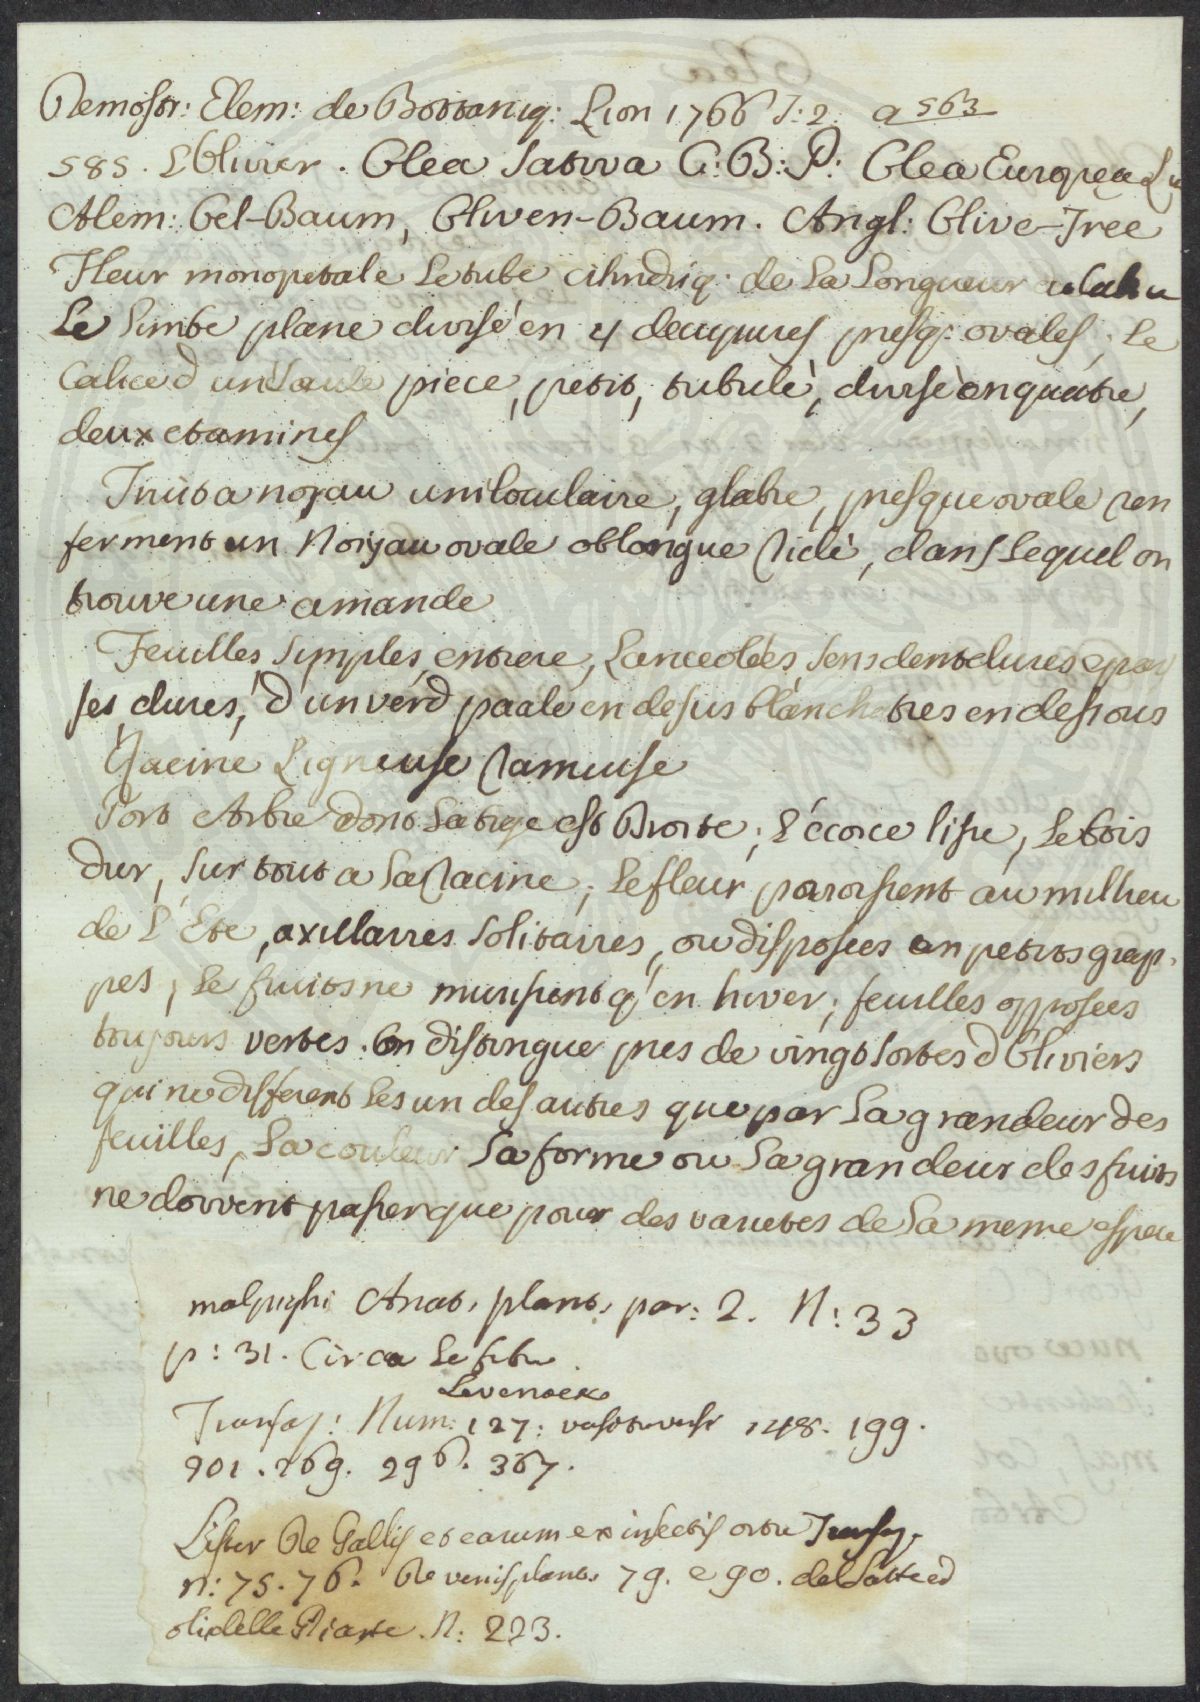 Demostr: Elem: de Bottaniq: Lion 1766 T: 2. a 563
585. L'Olivier. Olea Sativa C: B: P: Olea Europea Lin
Alem: Oel-Baum, Oliven-Baum. Angl: Olive-Tree
Fleur monopetale Le tube cilindriq: de La Longueur
Le Limbe plane divisé en 4 decupures presq: ovales; Le
Calice d'un Saule piece, petit, tubulé, divisé en quatre,
deux etamines
Fruit a noyau uniloculaire, glabre, presque ovale ren
ferment un Noiyau ovale oblongue ridé, dans Lequel on
trouve une amande
Feuilles Simples, entiere, Lanceolées, Sens dentelures epar
ses, dures, d'un verd paale en desus blanchatres en dessous
Racine Ligneuse rameuse
Port Arbre dont La tige est Droite; L'écorce lisse, Le bois
dur, Sur tout a La racine; Le fleur paroissent au milieu
de L'Ete, axillaires Solitaires, ou disposees en petits grap-
pes, Le fruits ne murissent q'en hiver; feuilles opposees
toujours vertes. On distingue pres de vingt Sortes d'Oliviers
qui ne different Les un des autres que par La grandeur des
feuilles, La couleur La forme ou La grandeur des fruits
ne doivent passer que pour des varietes de La meme espece
malpighi Anat. plant. par: 2. N: 33
p: 31. Circa Le
Levenoek
Transaz: Num: 127: 148. 199.
201. 269. 296. 367.
Lister De Gallis et earum ex insectis ortu Transaz.
n: 75. 76. De venis plant. 79. e 90. del Latte ed
oli delle Piante. N: 223.